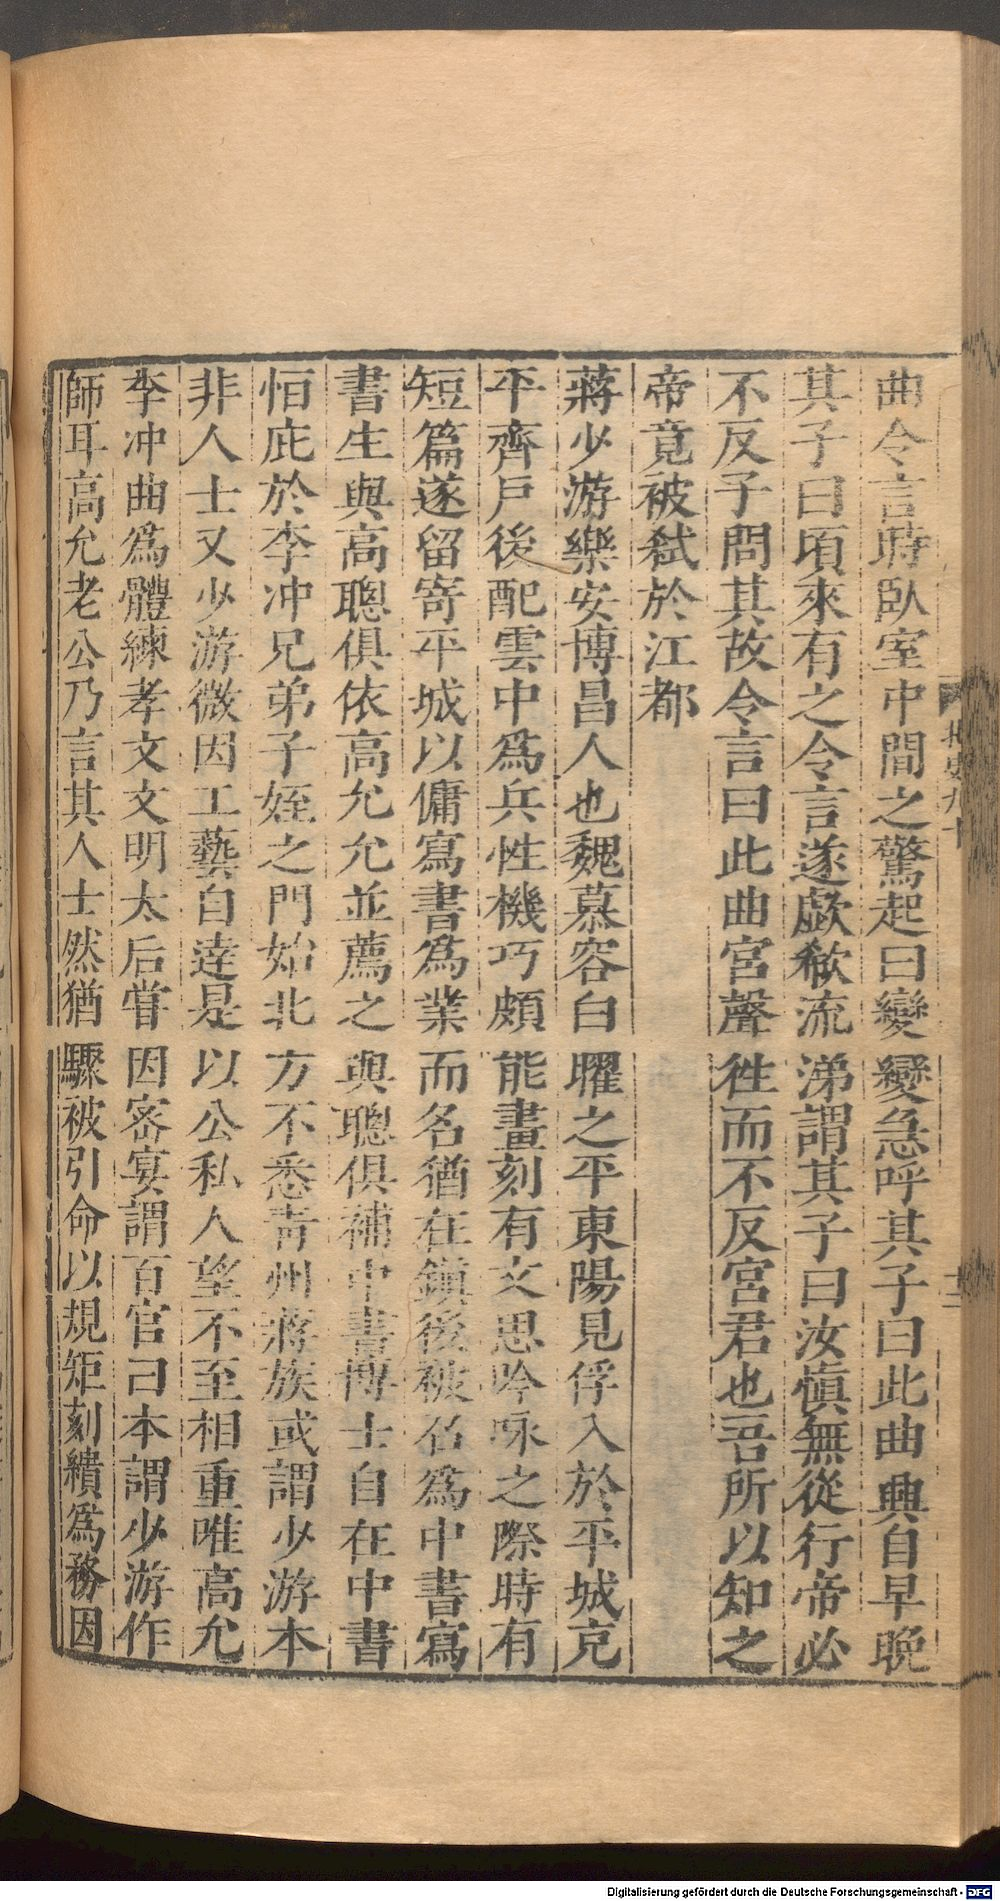 曲令言時臥室中聞之驚起曰變變急呼其子曰此曲興自早晚
其子曰頃來有之令言遂歔欷流涕謂其子曰汝慎無從行帝必
不反子問其故令言曰此曲宮聲徃而不反宮君也吾所以知之
帝竟被弒於江都
蔣少游樂安博昌人也魏慕容白曜之平東陽見俘入於平城充
平齊戶後配雲中爲兵性機巧頗能畫刻有文思吟咏之際時有
短篇遂留寄平城以傭寫書爲業而名猶在鎮後被召爲中書寫
書生與高聰俱依高允允並薦之與聰俱補中書博士自在中書
恒庇於李冲兄弟子姪之門始北方不悉青州蔣族或謂少游本
非人士又少游微因工藝自達是以公私人望不至相重唯高允
李冲曲爲體練孝文文明太后嘗因密宴謂百官曰本謂少游作
師耳高允老公乃言其人士然猶驟被引命以規矩刻繢爲務因
北史九十
十二
Digitalisierung gefördert durch die Deutsche Forschungsgemeinschaft - DFG